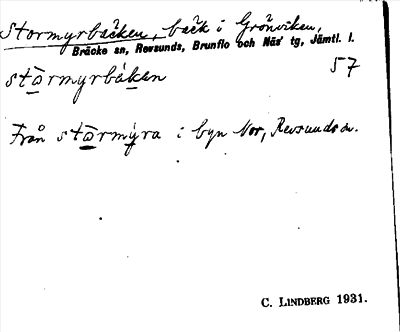 Stormyrbäcken, bäck i Grönviken,
Bräcke sn, Revsunds, Brunflo och Näs' tg, Jämtl. l.
stōrmyrbäkan 57
Från stōrmyra i byn Nor, Revsunds sn.
C. LINDBERG 1931.